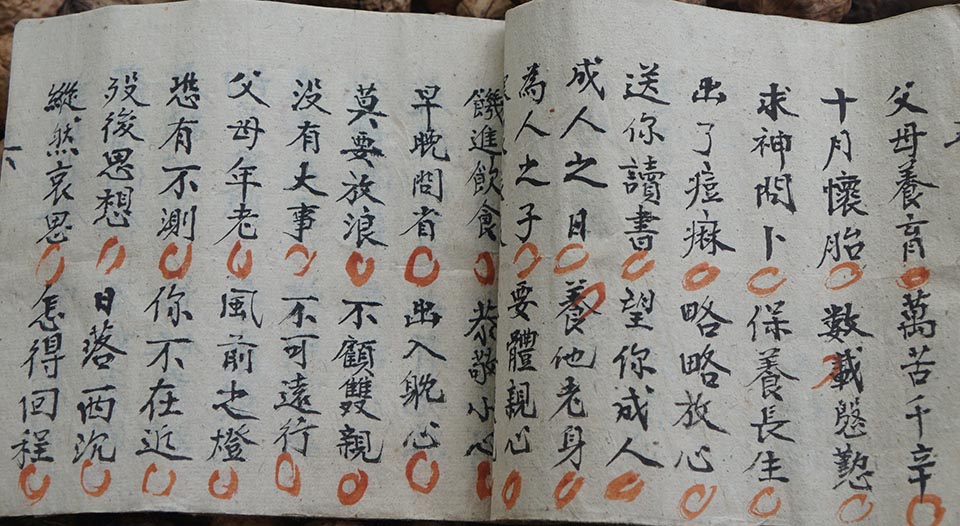 父母養育 萬苦千辛
十月懷胎 數載慇懃
求神問卜 保養長生
出了痘痳 略略放心
送你讀書 望你成人
成人之日 養他老身
為人之子 要體親心
饑進飲食 恭敬小心
早晚問省 出入躭心
莫要放浪 不顧雙親
没有大事 不可遠行
父母年老 風前之燈
恐有不測 你不在近
歿後思想 日落西沉
縱然哀思 怎得回程